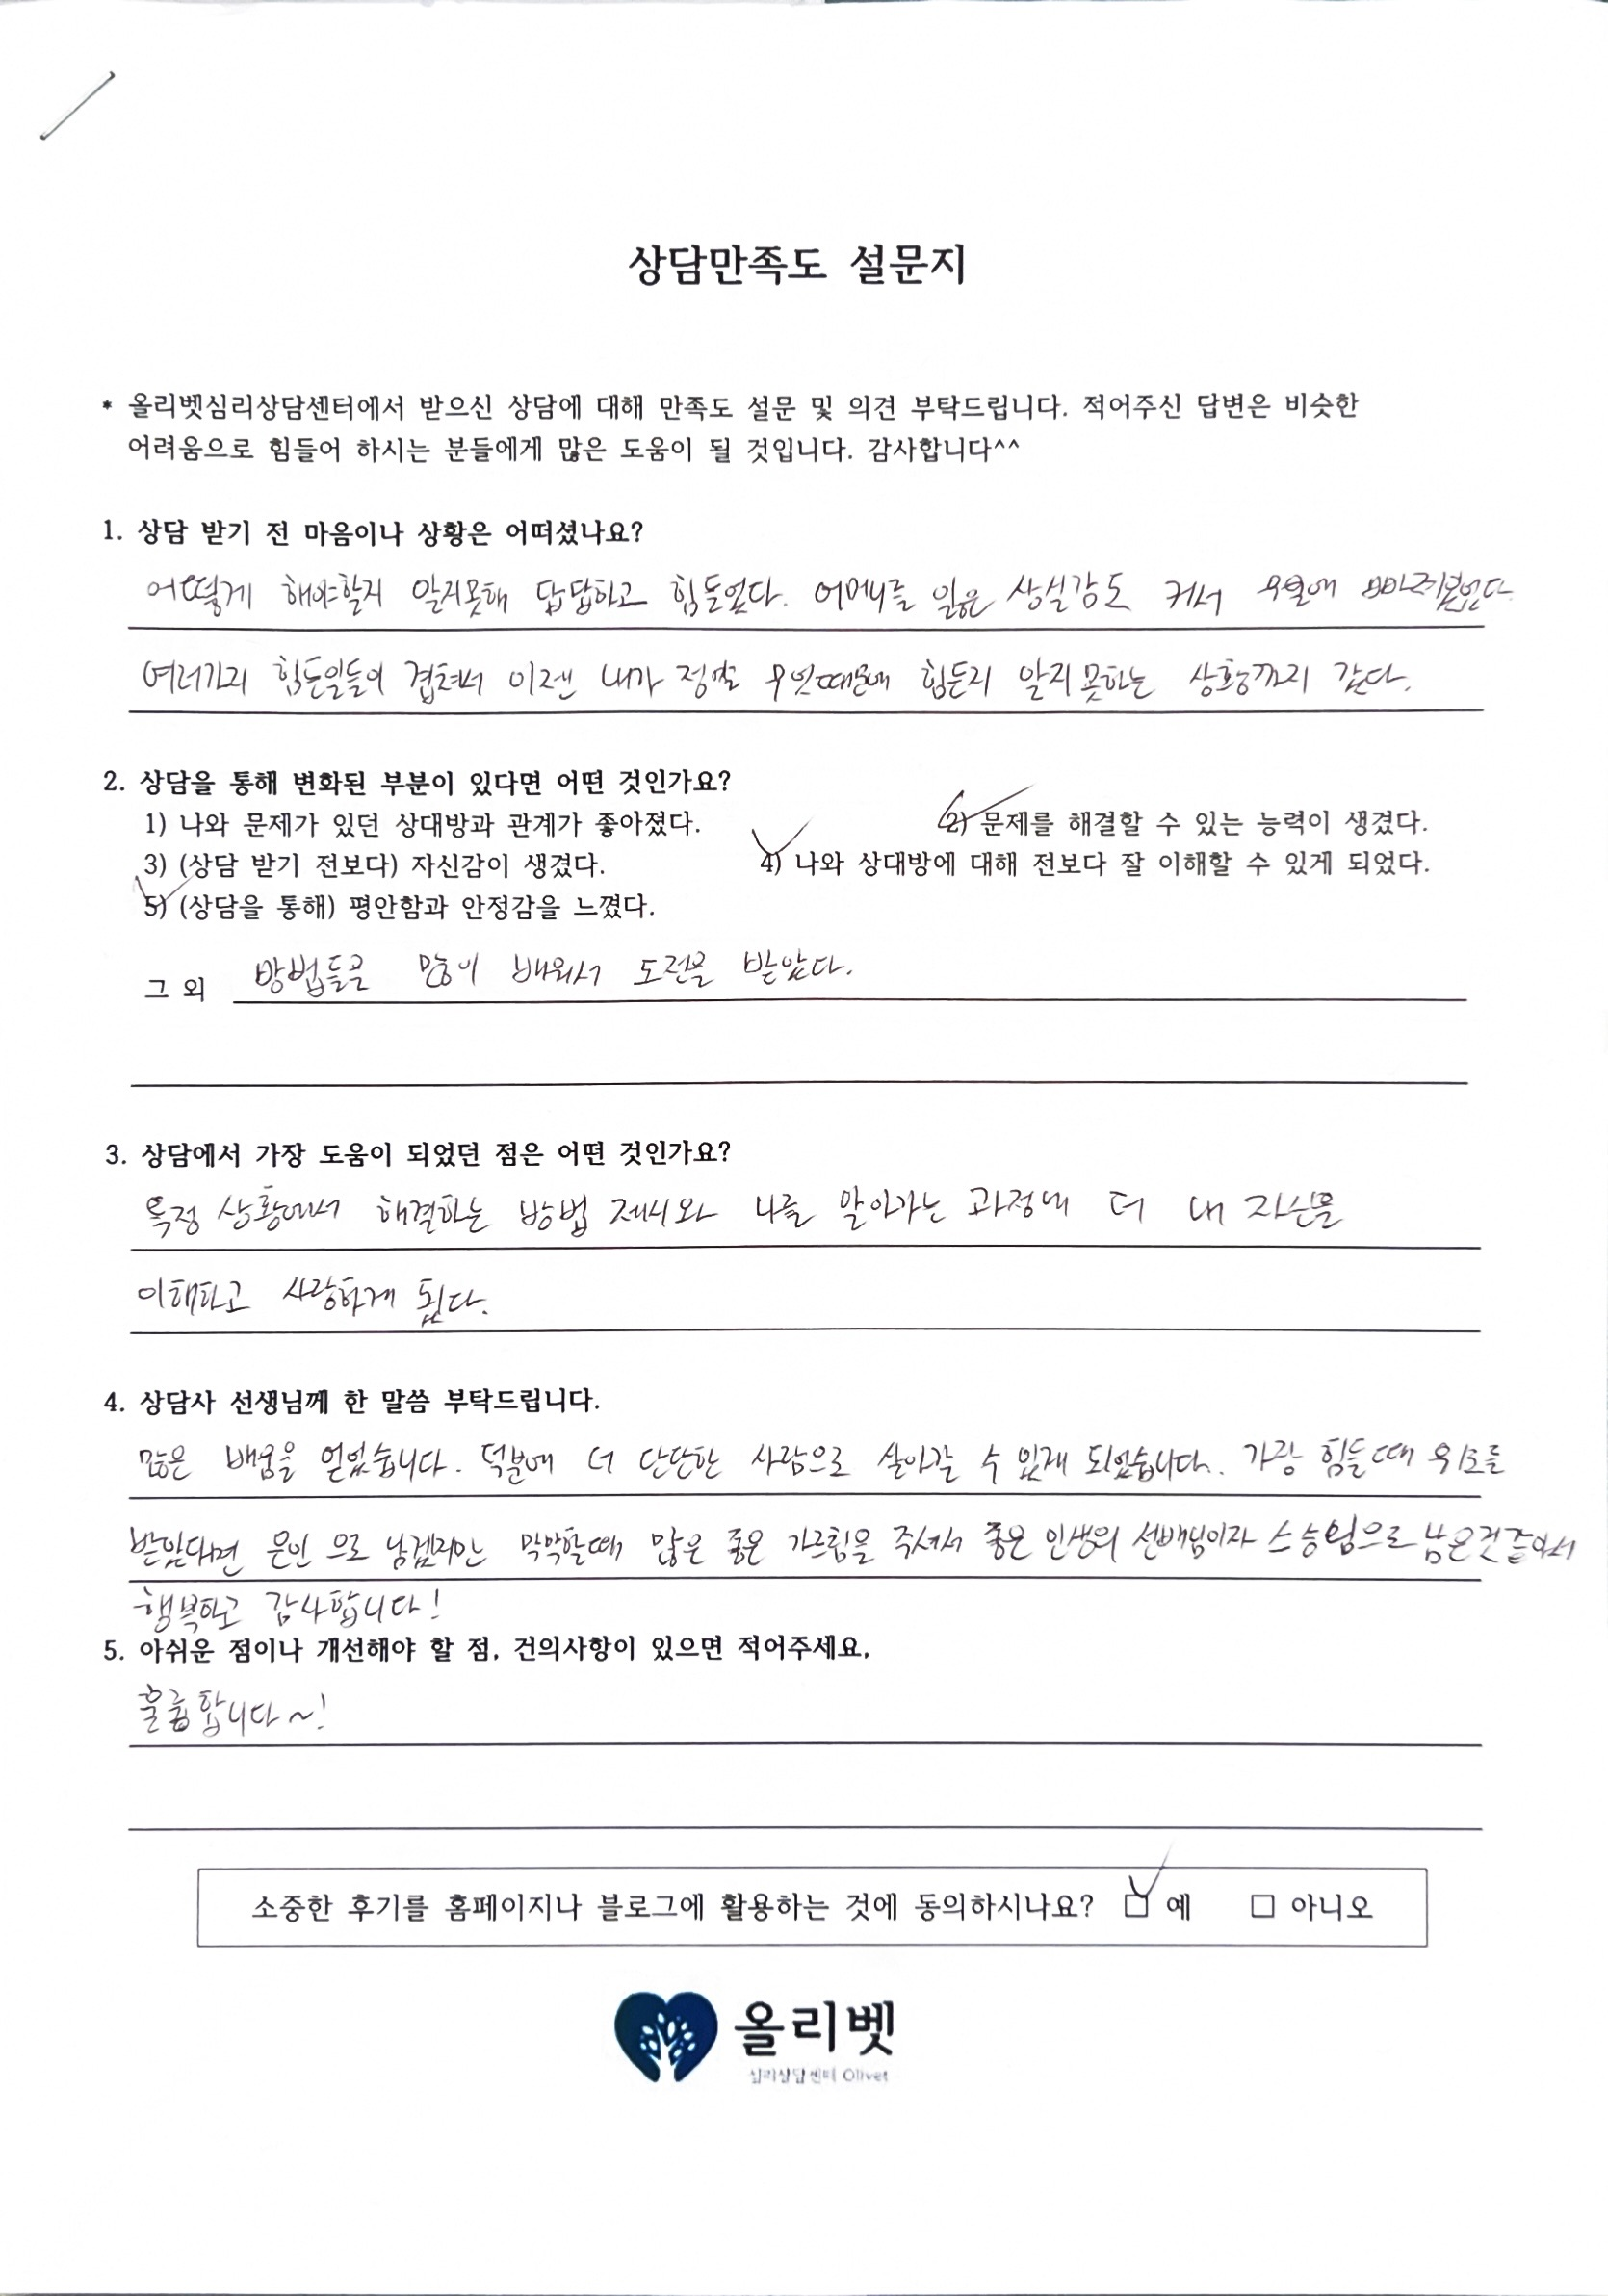 상담만족도 설문지
* 올리벳심리상담센터에서 받으신 상담에 대해 만족도 설문 및 의견 부탁드립니다. 적어주신 답변은 비슷한
어려움으로 힘들어 하시는 분들에게 많은 도움이 될 것입니다. 감사합니다^^
1. 상담 받기 전 마음이나 상황은 어떠셨나요?
어떻게 해야할지 알지못해 답답하고 힘들었다. 어머니를 잃은 상실감도 커서 우울에
여러가지 힘든일들이 겹쳐서 이젠 내가 정말 무엇때문에 힘든지 알지못하는 상황까지 갔다.
2. 상담을 통해 변화된 부분이 있다면 어떤 것인가요?
1) 나와 문제가 있던 상대방과 관계가 좋아졌다. 2) 문제를 해결할 수 있는 능력이 생겼다.
3) (상담 받기 전보다) 자신감이 생겼다. 4) 나와 상대방에 대해 전보다 잘 이해할 수 있게 되었다.
5) (상담을 통해) 평안함과 안정감을 느꼈다.
그 외 방법들을 많이 배워서 도전을 받았다.
3. 상담에서 가장 도움이 되었던 점은 어떤 것인가요?
특정 상황에서 해결하는 방법 제시와 나를 알아가는 과정에 더 내 자신을
이해하고 사랑하게 됬다.
4. 상담사 선생님께 한 말씀 부탁드립니다.
많은 배움을 얻었습니다. 덕분에 더 단단한 사람으로 살아갈 수 있게 되었습니다. 가장 힘들때 위로를
받았다면 은인 으로 남겠지만 막막할때 많은 좋은 가르침을 주셔서 좋은 인생의 선배님이자 스승님으로 남은것 같아서
행복하고 감사합니다!
5. 아쉬운 점이나 개선해야 할 점, 건의사항이 있으면 적어주세요.
훌륭합니다~!
소중한 후기를 홈페이지나 블로그에 활용하는 것에 동의하시나요? □ 예 □ 아니오
올리벳
심리상담센터 Olivet